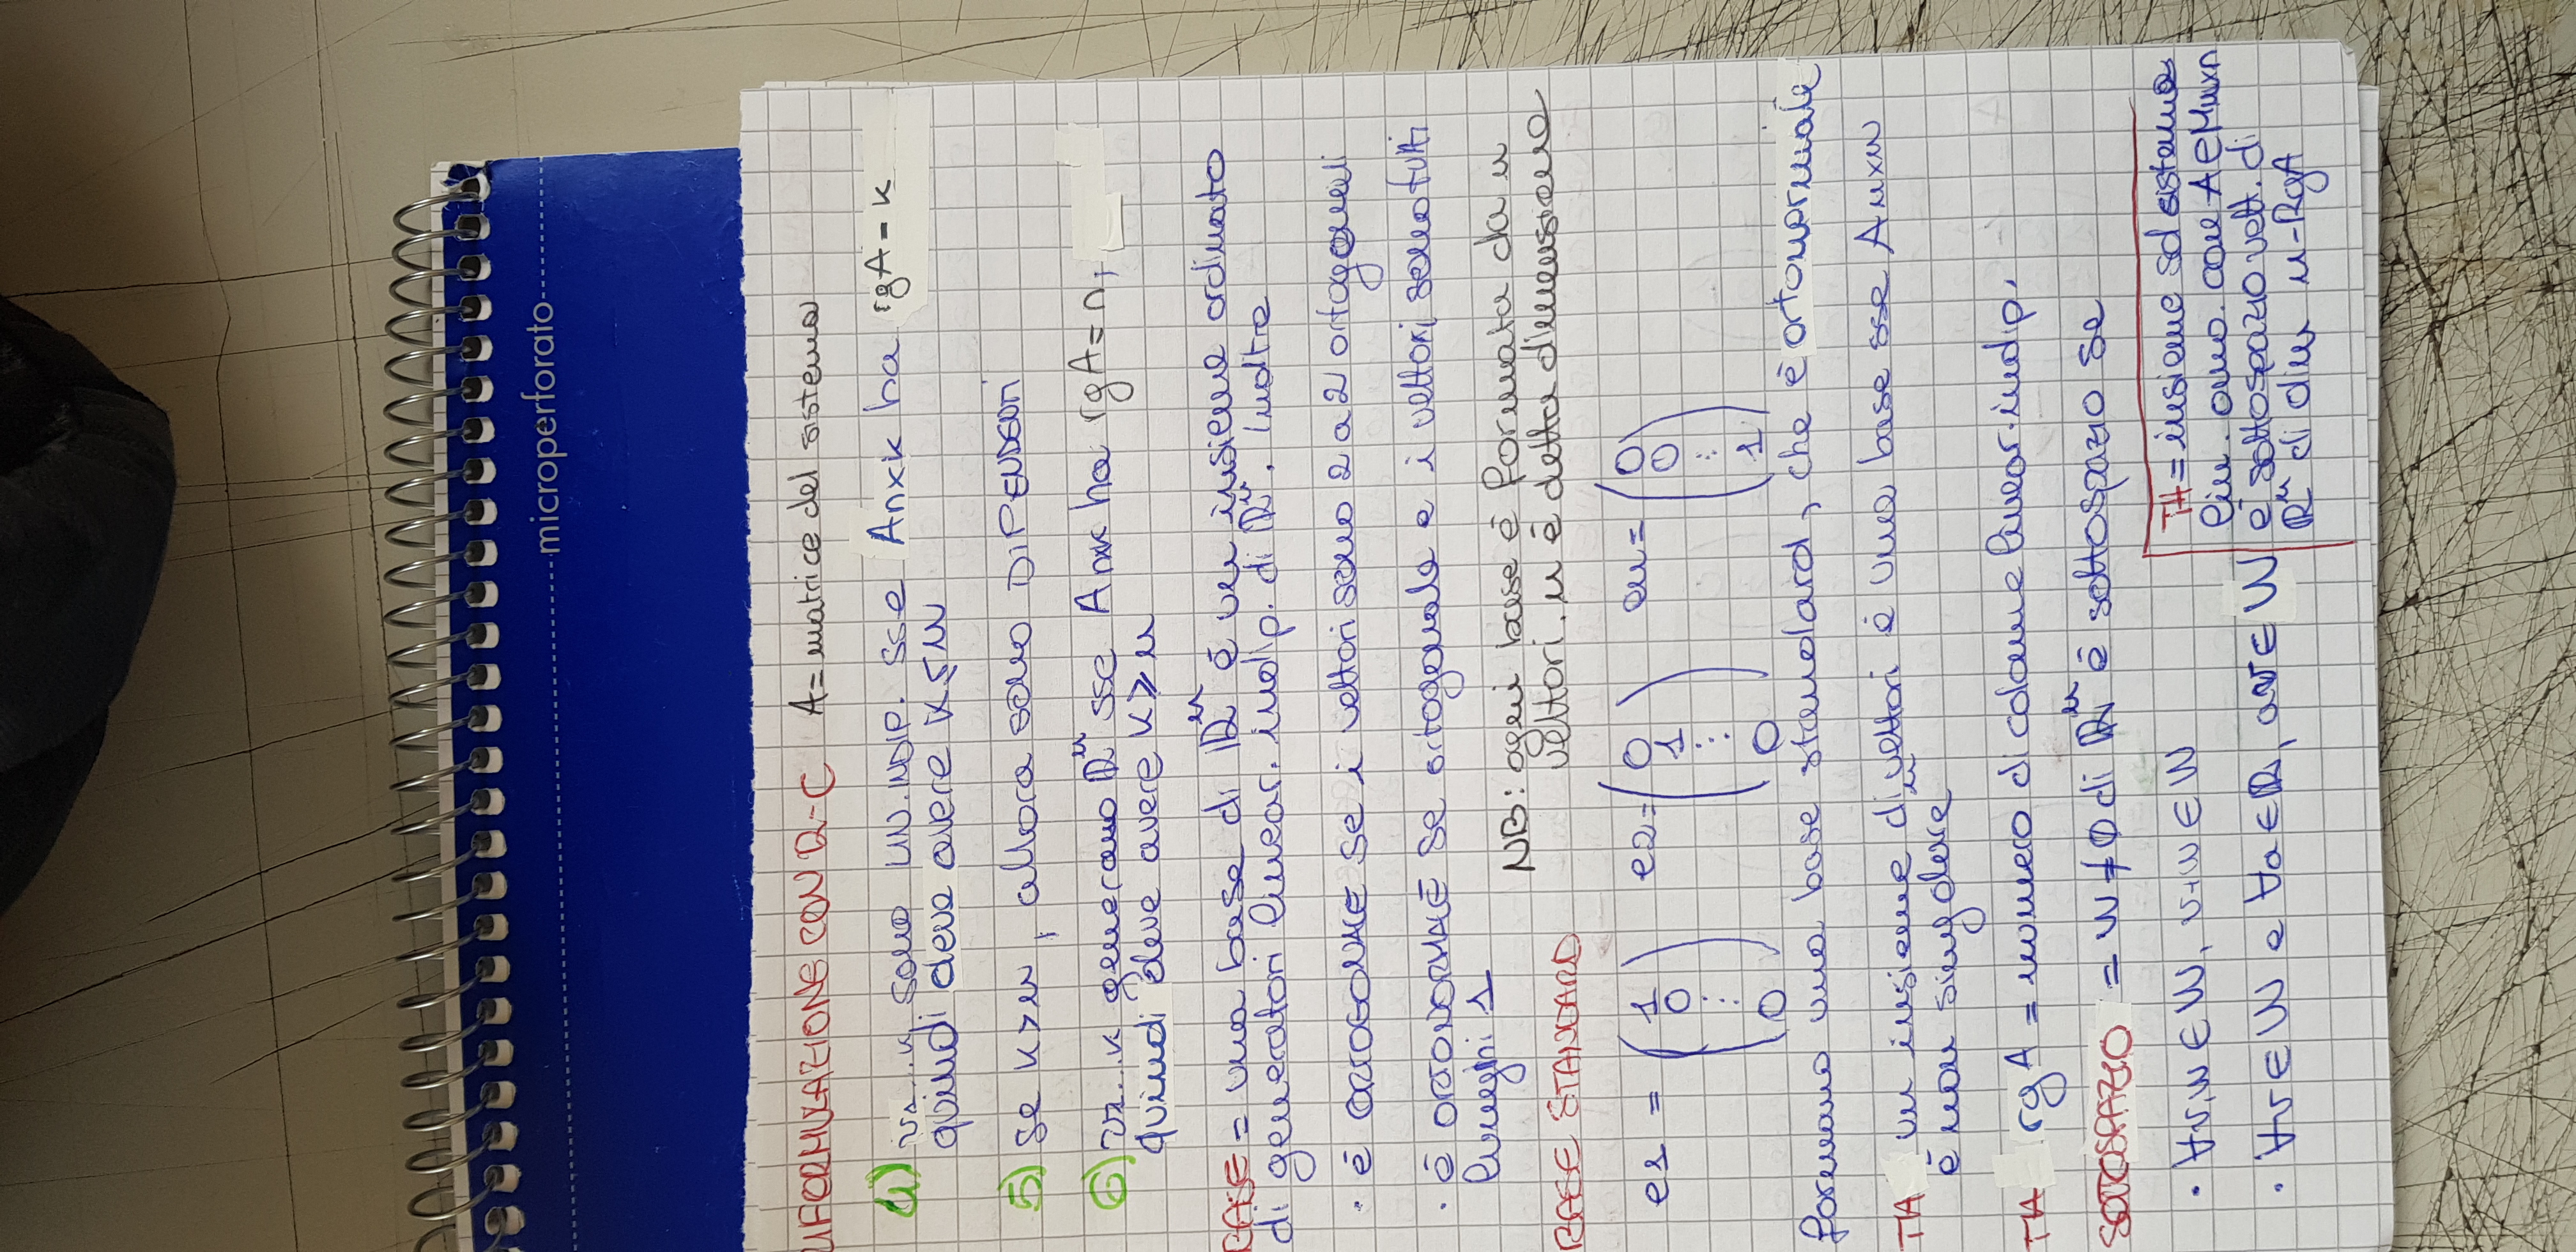 microperforato
RIFORMULAZIONE CON R-C A = matrice del sistema
4) v1...k sono LIN.INDIP. sse Anxk ha rgA = k
quindi deve avere k≤n
5) se k>n, allora sono DIPENDENTI
6) v1...k generano ℝⁿ sse Anxk ha rgA=n,
quindi deve avere k≥n
BASE = una base di ℝⁿ è un insieme ordinato
di generatori linear. indip. di ℝⁿ. Inoltre
· è ORTOGONALE se i vettori sono 2 a 2 ortogonali
· è ORTONORMALE se ortogonale e i vettori sono tutti
lunghi 1
NB: ogni base è formata da n
vettori. n è detta dimensione
BASE STANDARD
e1 = (1 0 ⋮ 0) e2 = (0 1 ⋮ 0) en = (0 0 ⋮ 1)
formano una base standard, che è ortonormale
TH un insieme di n vettori è una base sse Anxn
è non singolare
TH rgA = numero di colonne linear. indip.
SOTTOSPAZIO = W≠∅ di ℝⁿ è sottospazio se
· ∀v,w ∈ W, v+w ∈ W
· ∀v ∈ W e ∀a ∈ ℝ, av ∈ W
TH = insieme sol sistema
lin. omo. con A∈Mmxn
è sottospazio vett. di
ℝⁿ di dim n-RgA